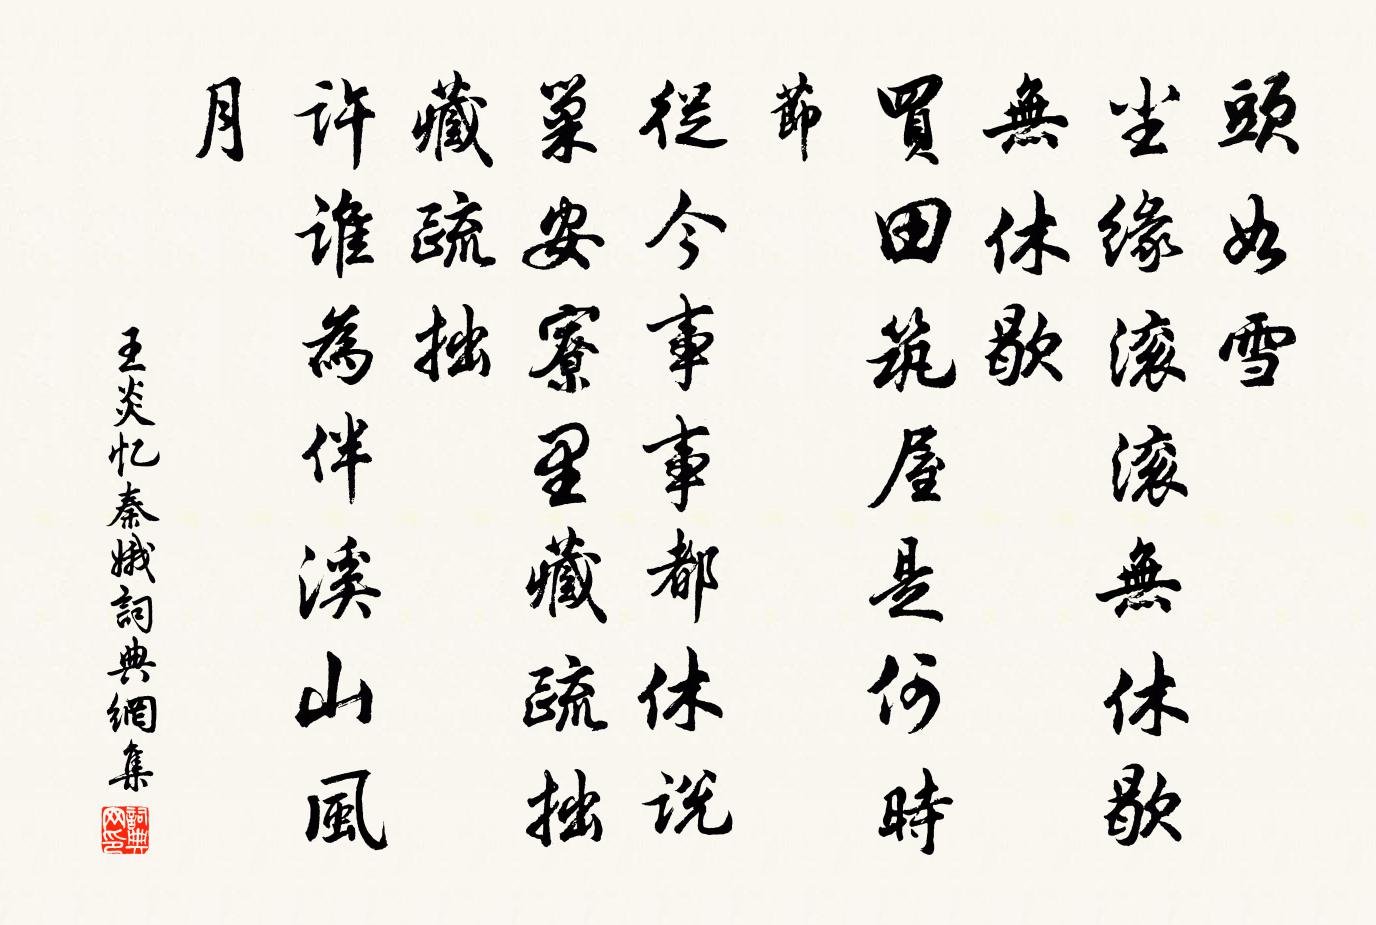 頭如雪
尘緣滚滚無休歇
無休歇
買田筑屋是何時
節
從今事事都休说
巢安寮里藏疏拙
藏疏拙
許誰為伴溪山風
月
王炎忆秦娥詞典網集
詞典
网印